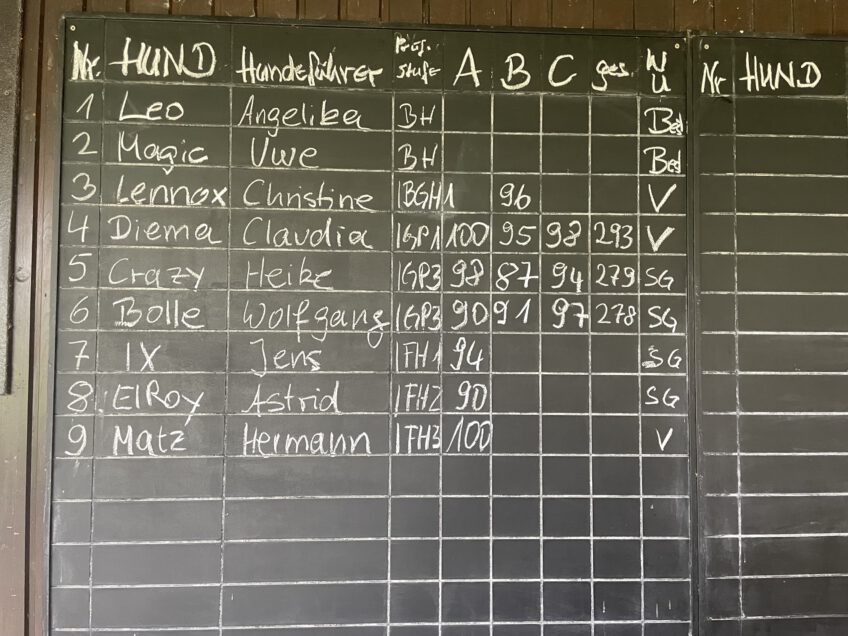 Nr. HUND Hundeführer Prüf.stufe A B C ges. WU Nr HUND
1 Leo Angelika BH Best
2 Magic Uwe BH Best
3 Lennox Christine IBGH1 96 V
4 Diema Claudia IGP1 100 95 98 293 V
5 Crazy Heike IGP3 98 87 94 279 SG
6 Bolle Wolfgang IGP3 90 91 97 278 SG
7 IX Jens IFH1 94 SG
8 ElRoy Astrid IFH2 90 SG
9 Matz Hermann IFH3 100 V